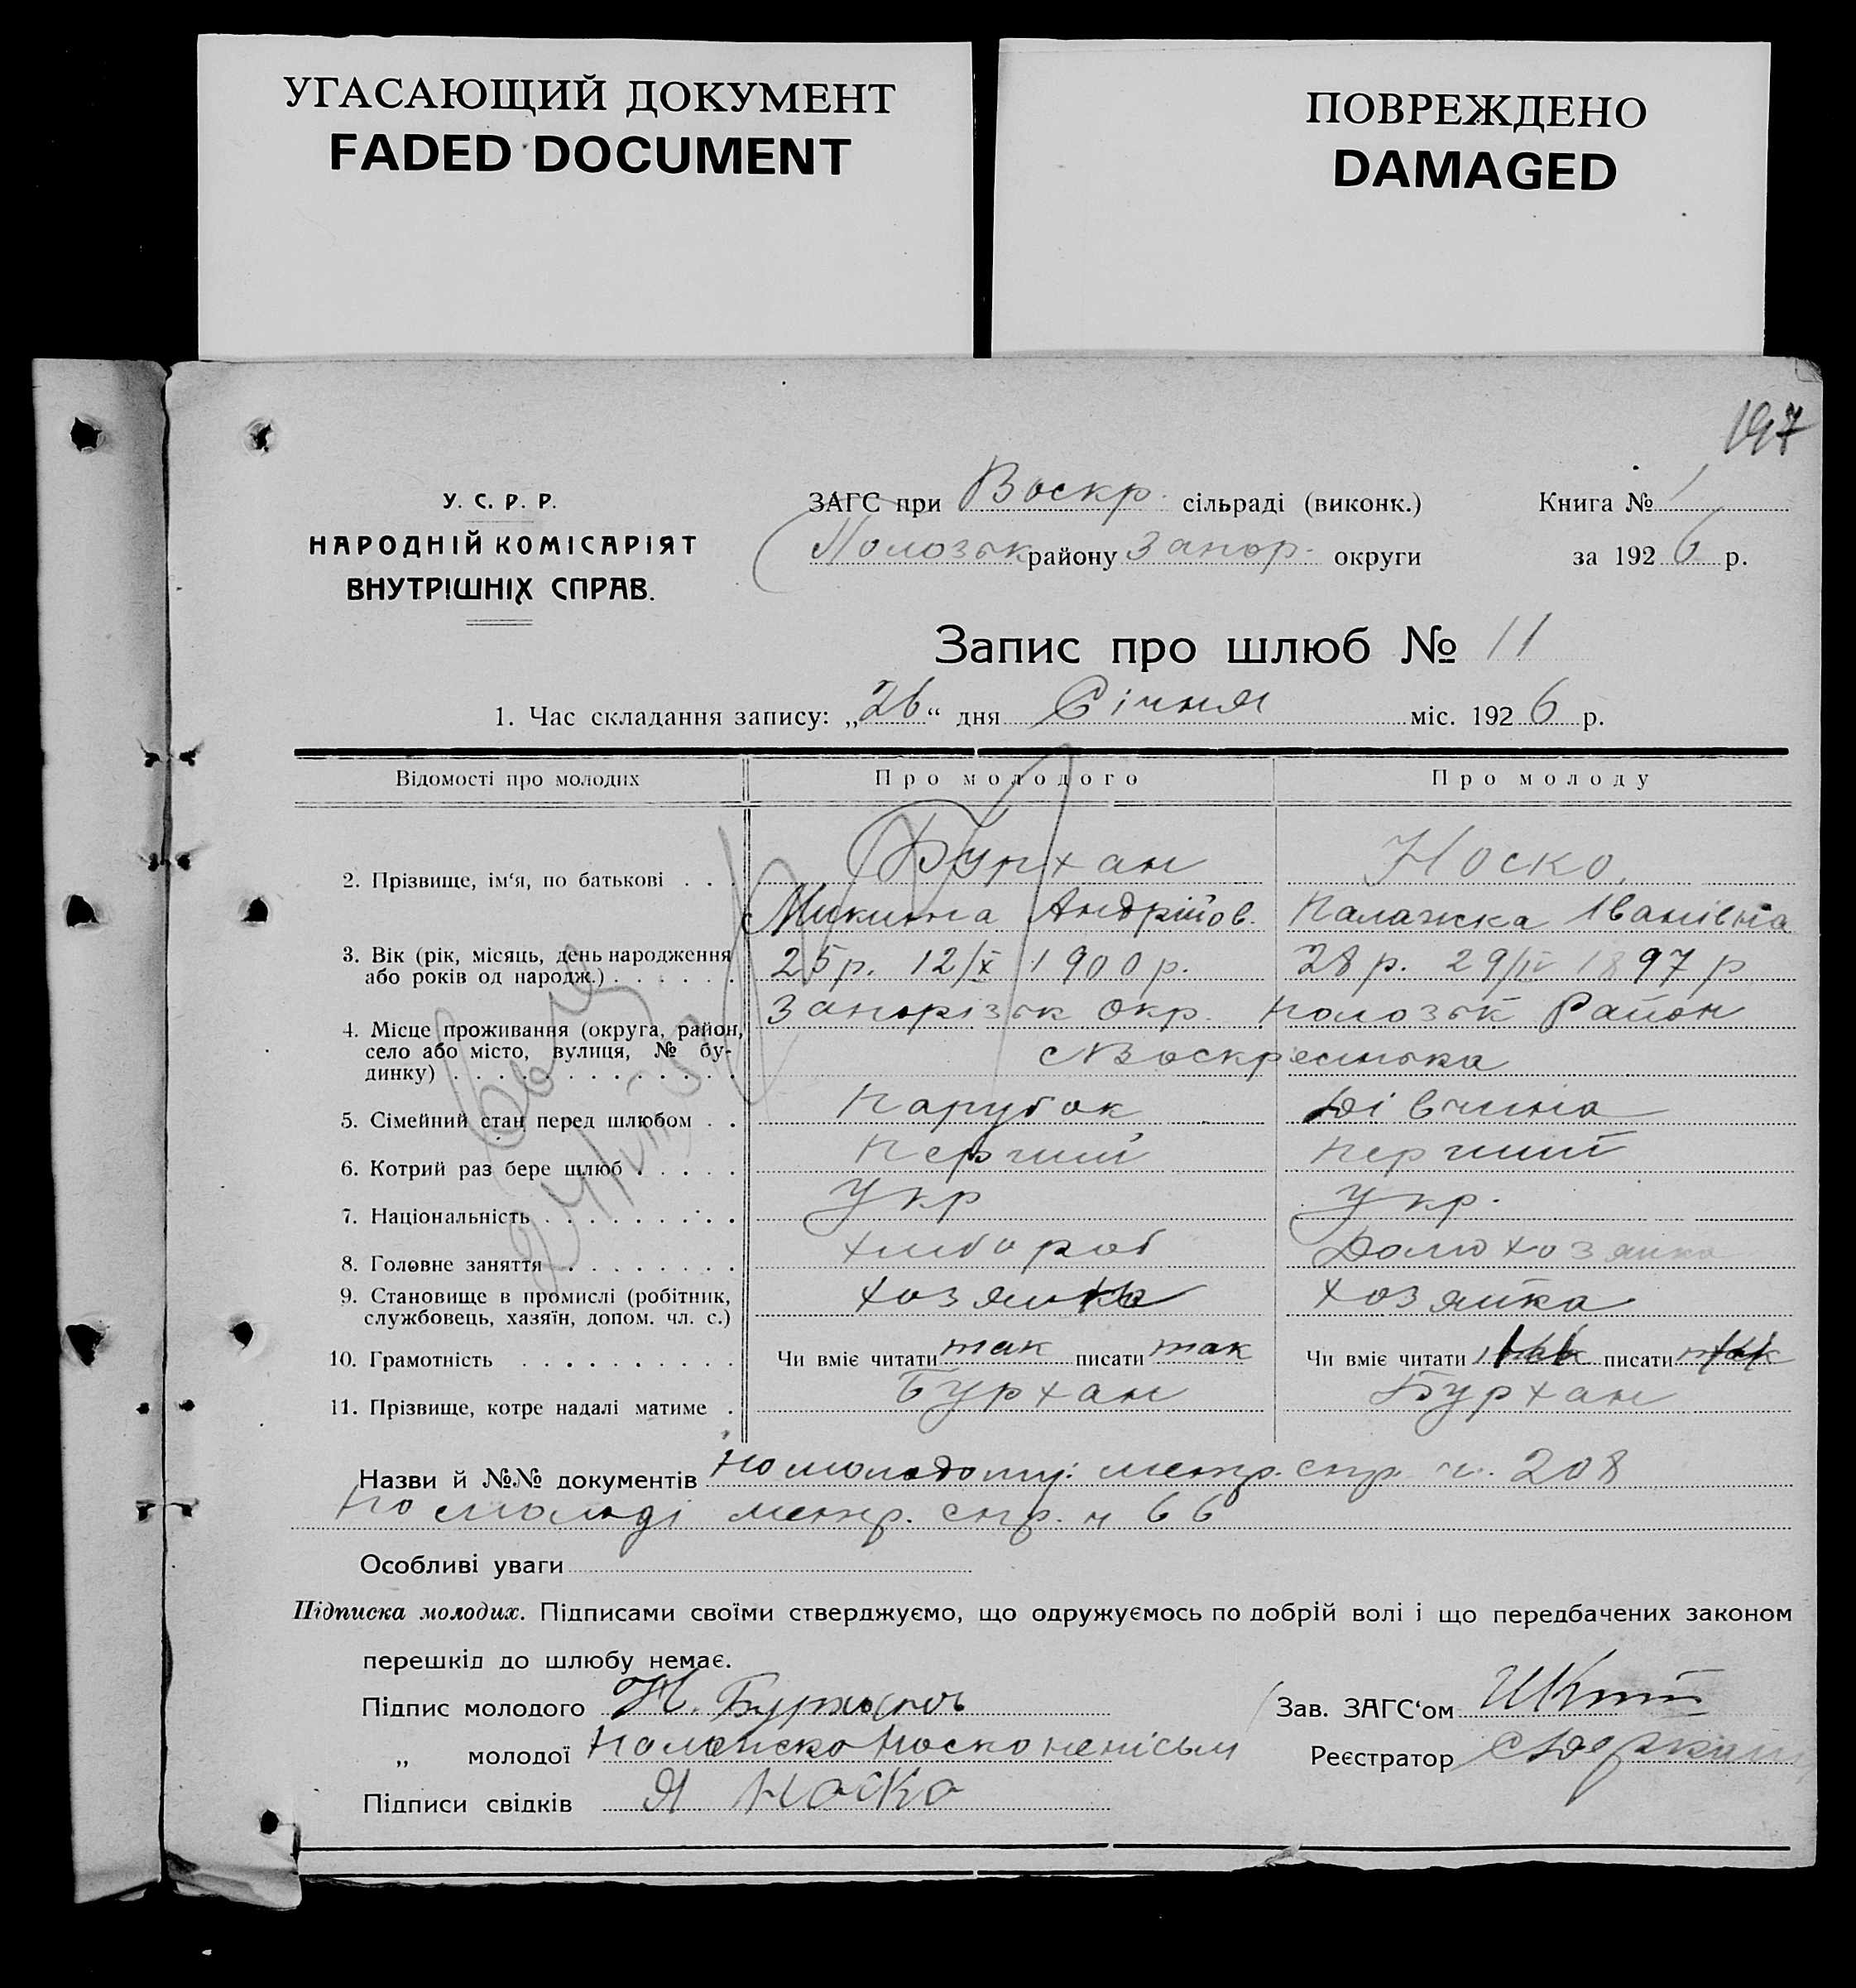 УГАСАЮЩИЙ ДОКУМЕНТ
FADED DOCUMENT
ПОВРЕЖДЕНО
DAMAGED
197
У. С. Р. Р.
НАРОДНІЙ КОМІСАРІЯТ
ВНУТРІШНІХ СПРАВ.
ЗАГС при Воскр. сільраді (виконк.)
Полозьк району Запор. округи
Книга № 1
за 1926 р.
Запис про шлюб № 11
1. Час складання запису: „26“ дня Січня міс. 1926 р.
Відомості про молодих Про молодого Про молоду
2. Прізвище, ім‘я, по батькові . . . Бурхан Носко
Микита Андрійов. Палажка Іванівна
3. Вік (рік, місяць, день народження 25 р. 12/X 1900 р. 28 р. 29/IV 1897 р
або років од народж.) . . . . . .
4. Місце проживання (округа, район, Запорізьк Окр. Полозьк Район
село або місто, вулиця, № бу- с Воскресенька
динку) . . . . . . . . . . . . .
5. Сімейний стан перед шлюбом . . Парубок Дівчина
6. Котрий раз бере шлюб . . . . . Перший Перший
7. Національність . . . . . . . . . Укр Укр.
8. Головне заняття . . . . . . . . Хлібороб Домохозяйка
9. Становище в промислі (робітник, хозяин хозяйка
службовець, хазяїн, допом. чл. с.)
10. Грамотність . . . . . . . . . . Чи вміє читати так писати так Чи вміє читати писати
11. Прізвище, котре надалі матиме . Бурхан Бурхан
Назви й №№ документів По молодому: метр. спр. ч. 208
По молоді метр. спр. ч 66
Особливі уваги
Підписка молодих. Підписами своїми стверджуємо, що одружуємось по добрій волі і що передбачених законом
перешкід до шлюбу немає.
Підпис молодого Н. Бурханъ
Зав. ЗАГС‘ом
„ молодої Носко
Реєстратор
Підписи свідків Я Носко